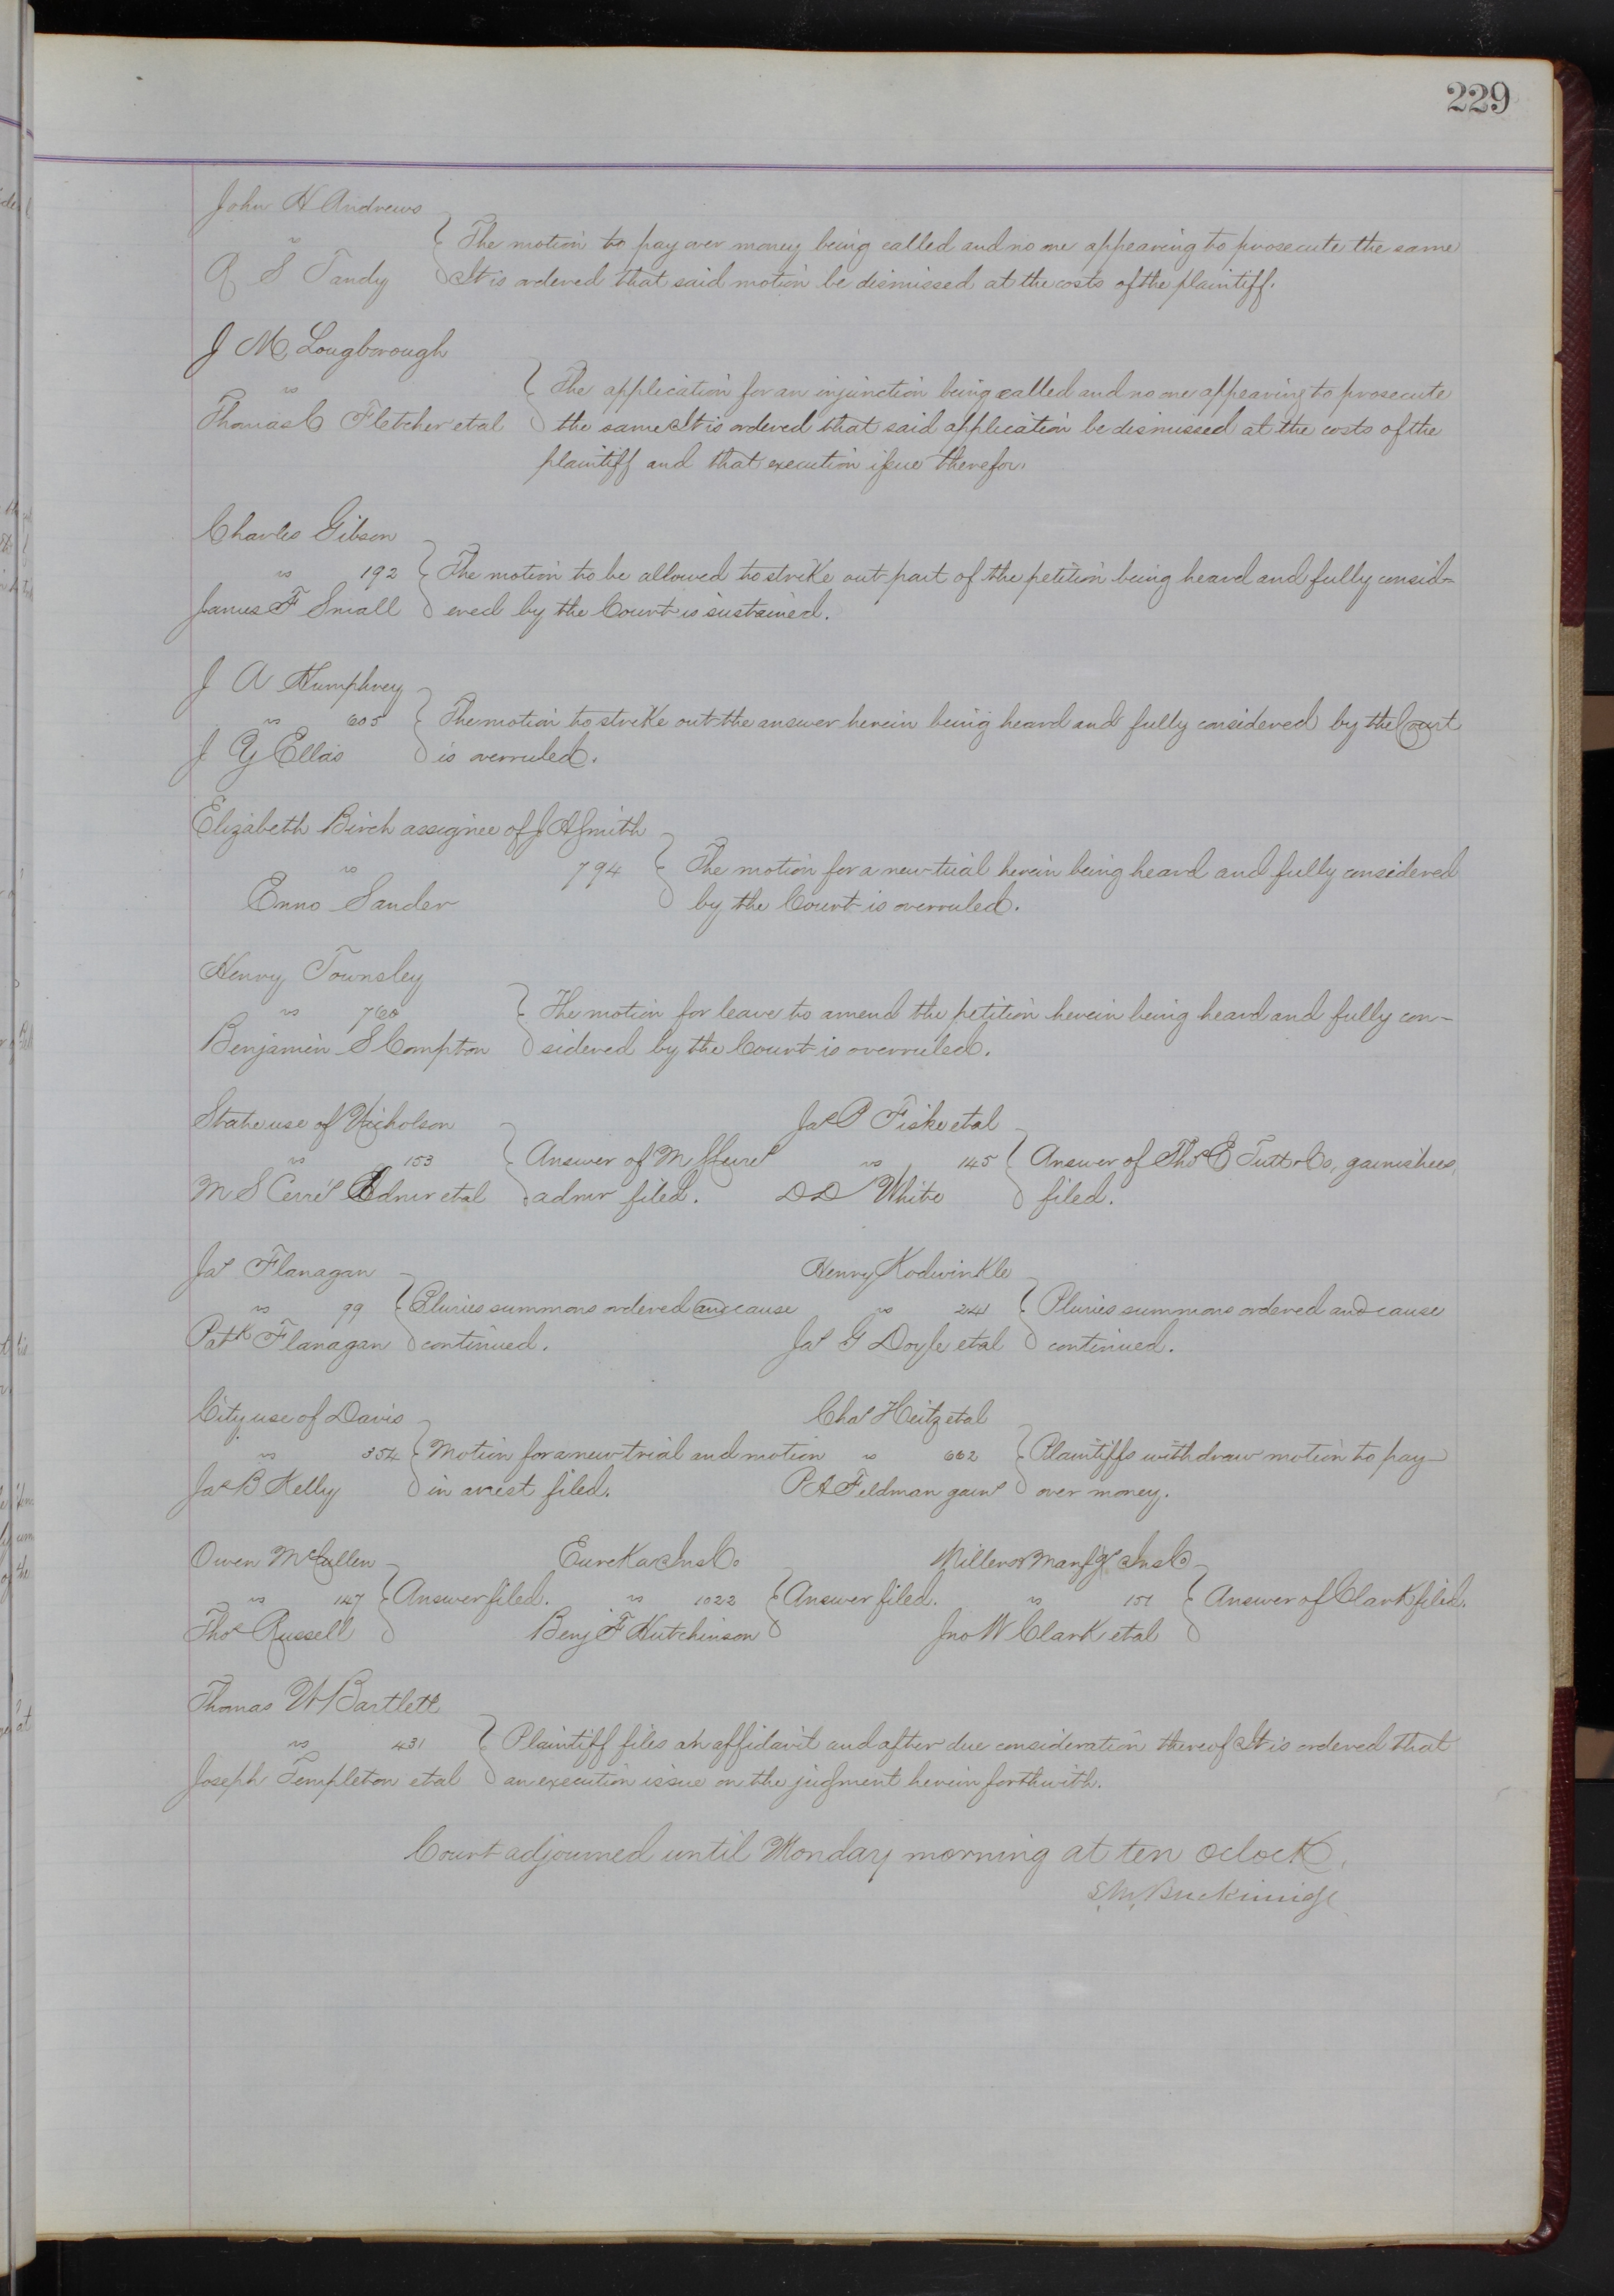 229
John H Andrews
vs
The motion to pay over money being called and no one appearing to prosecute the same
R S Tandy It is ordered that said motion be dismissed at the costs of the plaintiff.
J M Lougborough
vs
The application for an injunction being called and no one appearing to prosecute
Thomas C Fletcher etal the same It is ordered that said application be dismissed at the costs of the
plaintiff and that execution issue therefor.
Charles Gibson
vs 192 The motion to be allowed to strike out part of the petition being heard and fully consid-
James F Small ered by the Court is sustained.
J A Humphrey
vs 605 The motion to strike out the answer herein being heard and fully considered by the Court
J Y Ellis is overruled.
Elizabeth Birch assignee of J A Smith
vs 794 The motion for a new trial herein being heard and fully considered
Enno Sander by the Court is overruled.
Henry Townsley
vs 760 The motion for leave to amend the petition herein being heard and fully con-
Benjamin S Compton sidered by the Court is overruled.
State use of Nicholson
vs 153 Answer of M S
M S Cerré Admr etal admr filed.
Jas P Fiske etal
vs 145 Answer of Thos E Tutt & Co, garnishees,
D D White filed.
Jas Flanagan
vs 99 Pluries summons ordered and cause
Patk Flanagan continued.
Henry Kodwinkle
vs 241 Pluries summons ordered and cause
Jas G Doyle etal continued.
City use of Davis
vs 354 Motion for a new trial and motion
Jas B Kelly in arrest filed.
Chas Heitz etal
vs 662 Plaintiffs withdraw motion to pay
P A Feldman garns over money.
Owen McCullen
vs 147 Answer filed.
Thos Russell
Eureka Ins Co
vs 1022 Answer filed.
Benj F Hutchinson
Millers & Manfg Ins Co
vs 151 Answer of Clark filed.
Jno W Clark etal
Thomas W Bartlett
vs 431 Plaintiff files an affidavit and after due consideration thereof It is ordered that
Joseph Templeton etal an execution issue on the judgment herein forthwith.
Court adjourned until Monday morning at ten oclock.